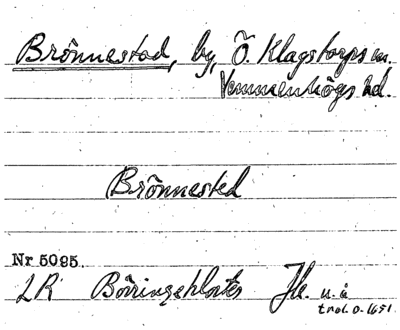 Brönnestad, by, Ö. Klagstorps sn.
Vemmenhögs hd.
Brönnested
Nr 5095.
LR Börringekloster Jb. u.å
trol. o. 1651